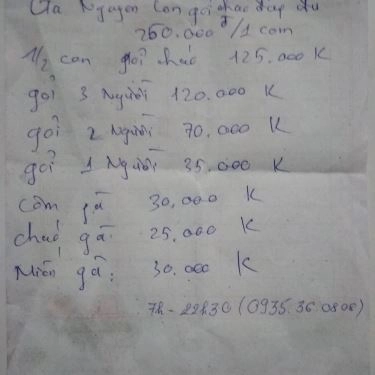 Gà Nguyên Con gỏi cháo đầy đủ
250.000 đ/1 con
1/2 con gỏi cháo 125.000 K
gỏi 3 Người 120.000 K
gỏi 2 Người 70.000 K
gỏi 1 Người 35.000 K
Cơm gà 30.000 K
cháo gà: 25.000 K
Miến gà: 30.000 K
7h - 22h30 (0935.36.0808)